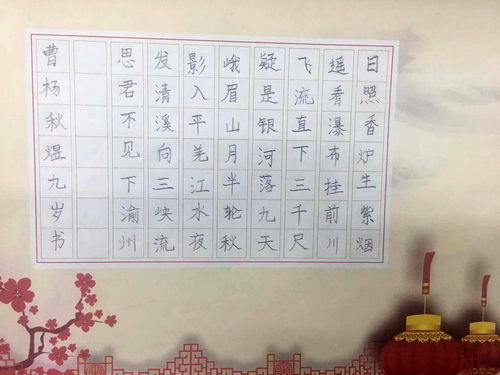 日照香炉生紫烟
遥看瀑布挂前川
飞流直下三千尺
疑是银河落九天
峨眉山月半轮秋
影入平羌江水夜
发清溪向三峡流
思君不见下渝州
曹杨秋煜九岁书